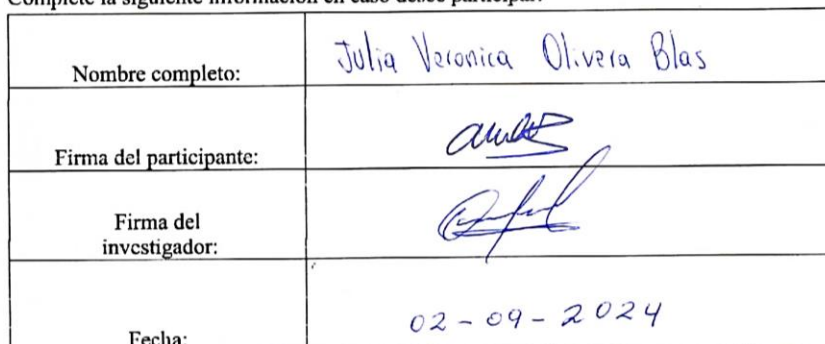 Complete la siguiente información en caso desee participar:
Nombre completo: Julia Veronica Olivera Blas
Firma del participante:
Firma del
investigador:
Fecha: 02-09-2024